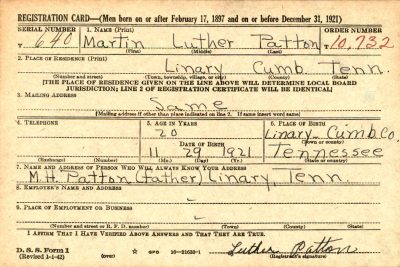 REGISTRATION CARD—(Men born on or after February 17, 1897 and on or before December 31, 1921)
SERIAL NUMBER 1. NAME (Print) ORDER NUMBER
T 640 Martin Luther Patton T 10,732
(First) (Middle) (Last)
2. PLACE OF RESIDENCE (Print)
Linary Cumb. Tenn.
(Number and street) (Town, township, village, or city) (County) (State)
[THE PLACE OF RESIDENCE GIVEN ON THE LINE ABOVE WILL DETERMINE LOCAL BOARD
JURISDICTION; LINE 2 OF REGISTRATION CERTIFICATE WILL BE IDENTICAL]
3. MAILING ADDRESS
Same
[Mailing address if other than place indicated on line 2. If same insert word same]
4. TELEPHONE 5. AGE IN YEARS 6. PLACE OF BIRTH
20 Linary Cumb Co.
DATE OF BIRTH (Town or county)
11 29 1921 Tennessee
(Exchange) (Number) (Mo.) (Day) (Yr.) (State or country)
7. NAME AND ADDRESS OF PERSON WHO WILL ALWAYS KNOW YOUR ADDRESS
M.H. Patton (father) Linary, Tenn.
8. EMPLOYER'S NAME AND ADDRESS
-
9. PLACE OF EMPLOYMENT OR BUSINESS
-
(Number and street or R. F. D. number) (Town) (County) (State)
I AFFIRM THAT I HAVE VERIFIED ABOVE ANSWERS AND THAT THEY ARE TRUE.
D. S. S. Form 1 (over) 16—21630-1 Luther Patton
(Revised 1-1-42) (Registrant's signature)